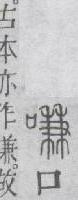 嗛口
。古本亦作兼。故